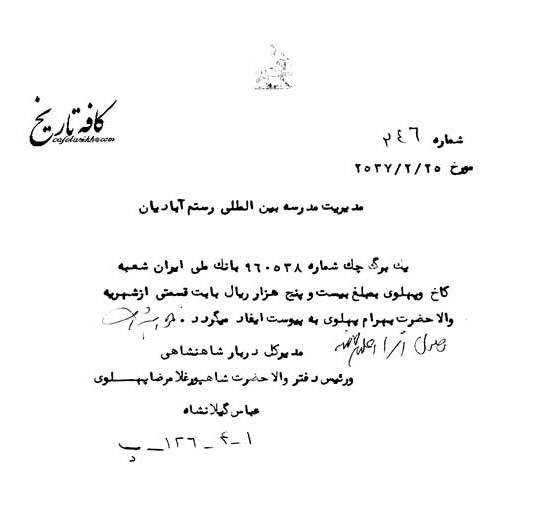 کافه تاریخ
cafetarikh.com
شماره ۲۴۶
مورخ ۲۵۳۷/۲/۲۵
مدیریت مدرسه بین المللی رستم آبادیان
یک برگ چک شماره ۹۶۰۵۳۸ بانک ملی ایران شعبه
کاخ وپهلوی بمبلغ بیست و پنج هزار ریال بابت قسمتی ازشهریه
والا حضرت بهرام پهلوی به پیوست ایفاد میگردد .
وصول آنرا اعلام
مدیرکل دربار شاهنشاهی
ورئیس دفتر والا حضرت شاهپورغلامرضا پهلوی
عباس گیلانشاه
۱-۴-۱۲۶-پ